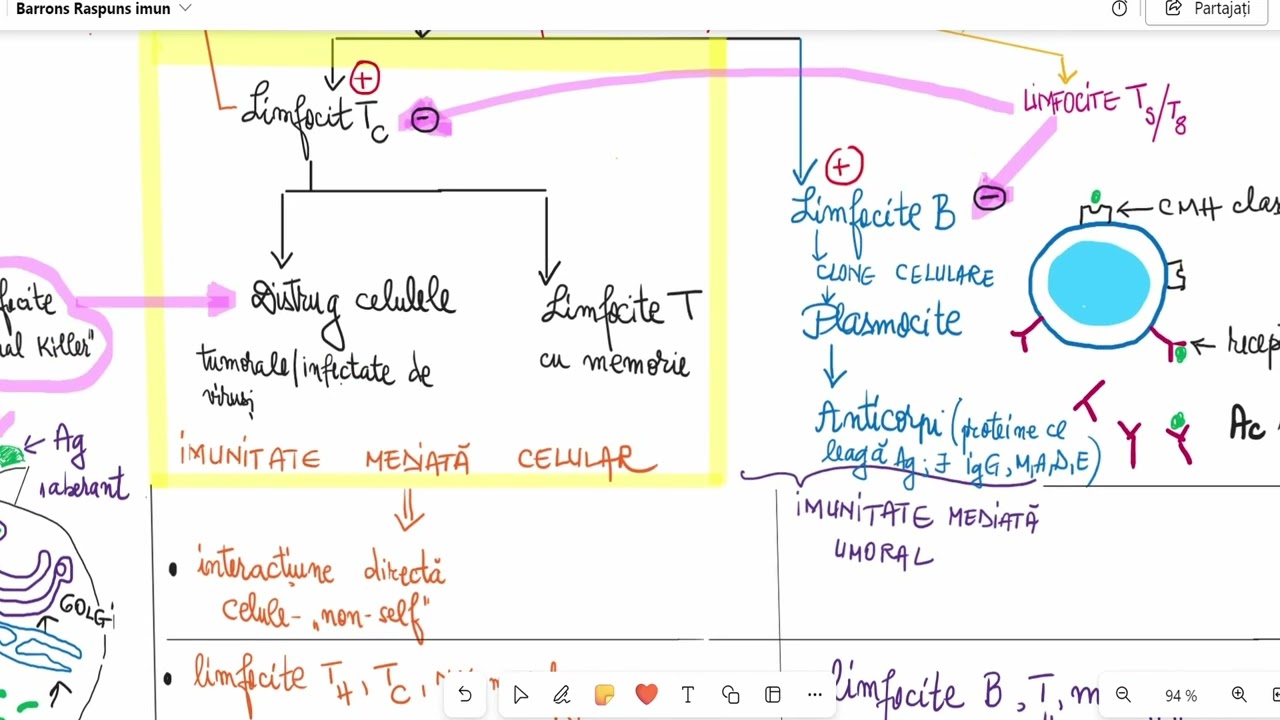 Barrons Raspuns imun
Partajați
+
Limfocit Tc
-
LIMFOCITE Ts/T8
+
Limfocite B
-
CMH clas
CLONE CELULARE
Plasmocite
Distrug celulele
tumorale/infectate de
viruși
Limfocite T
cu memorie
al Killer"
recep
Anticorpi (proteine ce
leagă Ag; ∃ IgG, M, A, D, E)
Ac
Ag
aberant
IMUNITATE MEDIATĂ CELULAR
IMUNITATE MEDIATĂ
UMORAL
• interacțiune directă
celule- „non-self"
GOLGI
• limfocite TH, Tc,
limfocite B, T, m
94 %